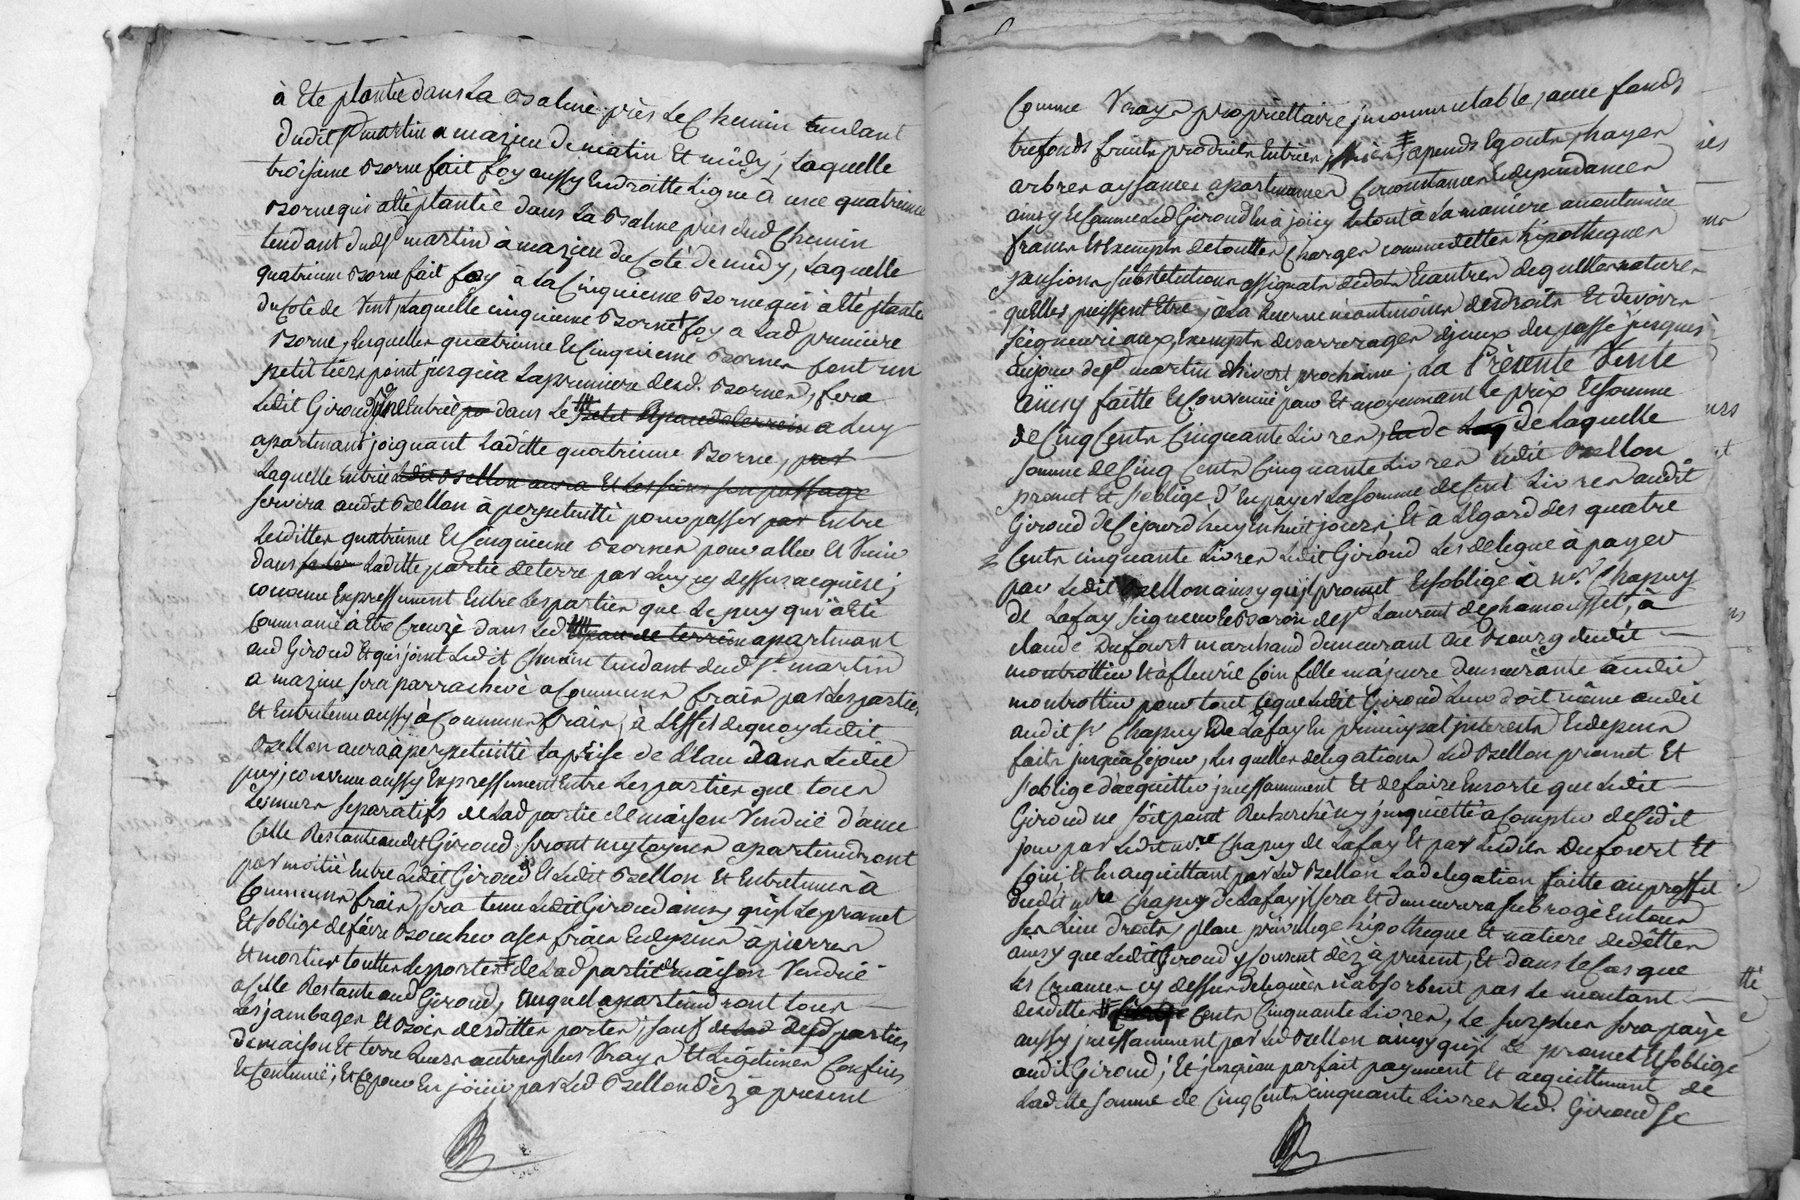 à Eté plantée dans La Balme près Le Chemin tendant
dudit St martin a mazieu de matin Et midy, Laquelle
troisieme Borne fait foy aussy En droitte Ligne à une quatrieme
Borne qui a été plantée dans La Balme près dud Chemin
tendant dud St martin à mazieu du Coté de midy, Laquelle
quatrieme Borne fait foy a la Cinquieme Borne qui à été plantée
du Coté de Vent, Laquelle cinquieme Borne foy a Lad premiere
Borne, Lesquelles quatrieme Et Cinquieme Bornes font un
petit tiers point jusqu'à La premiere desd. Bornes, fera
Ledit Giroud une Entrée dans Le petit a Luy
apartenant joignant Laditte quatrieme Borne,
Laquelle Entrée Ledit Bellon aura Et son passage
servira audit Bellon à perpetuitté pour passer par Entre
Lesdittes quatrieme Et Cinquieme Bornes pour aller Et Venir
dans Laditte partie de terre par Luy cy dessus acquise;
convenu Expressement Entre Les parties que Le puy qui à Eté
Commancé à Etre Creuzé dans Led terrein apartenant
aud Giroud Et qui joint Ledit Chemin tendant dud St martin
a mazieu sera parrachevé a Communs fraix par Les parties
Et Entretenu aussy à Communs fraix, à L'effet de quoy Ledit
Bellon aura à perpetuitté La prise de L'Eau dans Ledit
puy; convenu aussy Expressement Entre Les parties que tous
Les murs separatifs de Lad partie de maison Venduë d'avec
Celle Restante audit Giroud, seront mytoyens apartiendront
par moitié Entre Ledit Giroud Et Ledit Bellon Et Entretenus à
Communs fraix, sera tenu Ledit Giroud ainsy qu'il Le promet
Et s'oblige de faire Boucher a ses fraix Et depens à pierres
Et mortier touttes Les portes de Lad partie de maison Venduë
a Celle Restante aud Giroud, auquel apartiendront tous
Les jambages Et Bois desdittes portes, sauf desd parties
de maison Et terre Leurs autres plus Vrays Et Légitimes Confins
Et Contenuë; Et Ce pour En joüir par Led Bellon dez à present
Comme Vray propriettaire jncommutable, avec fonds
trefonds fruits produits Entrées sorties apends Egouts, hayes
arbres aysances apartenances Circonstances Et dependances
ainsy Et Comme Led Giroud En à joüy Le tout à La maniere accoutumée
francs Et Exempts de touttes Charges comme dettes hipotheques
pensions substitutions assignats de dots Et autres de quelles natures
qu'elles puissent Etre, à La reserve neantmoins des droits Et devoirs
seigneuriaux, Exempts des arrerages Ejceux du passé jusques
au jour de St martin d'hivert prochaine, La Présente Vente
ainsy faitte Et Convenuë pour Et moyennant Le prix Et somme
de Cinq Cents Cinquante Livres, de Laquelle
somme de Cinq Cents Cinquante Livres Ledit Bellon
promet Et s'oblige d'En payer La somme de Cent Livres audit
Giroud de Cejourd'huy En huit jours Et à L'Egard des quatre
Cents cinquante Livres Ledit Giroud Les delegue à payer
par Ledit Bellon ainsy qu'il promet Et s'oblige à Mre Chapuy
de Lafay seigneur Et Baron de St Laurent de chamousset, à
claude Dufourt marchand demeurant au Bourg dudit
montrottier Et à fleurie Coin fille majeure demeurante audit
montrottier pour tout ce que Ledit Giroud Leur doit même audit
audit Sr Chapuy De Lafay En principal jnterests Et depens
faits jusqu'à Cejour, Lesquelles delegations Led Bellon promet Et
s'oblige d'acquitter jncessamment Et de faire En sorte que Ledit
Giroud ne soit point Recherché ny jnquietté a compter de Cedit
jour par Ledit Mre Chapuy de Lafay Et par Lesdits Dufourt Et
Coin Et En acquittant par Led Bellon La delegation faitte au proffit
dudit Mre Chapuy de Lafay, jl sera Et demeurera subrogé En tous
ses Lieu droits, place privilege hipotheque Et nature de dettes
ainsy que Ledit Giroud y consent dez à present, Et dans Le Cas que
Les Creances cy dessus deleguées n'absorbent pas Le montant
desdittes Cents Cinquante Livres, Le surplus sera payé
aussy jncessamment par Led Bellon ainsy qu'il Le promet Et s'oblige
audit Giroud; Et jusqu'au parfait payement Et acquittement de
Laditte somme de Cinq Cents cinquante Livres Led. Giroud se